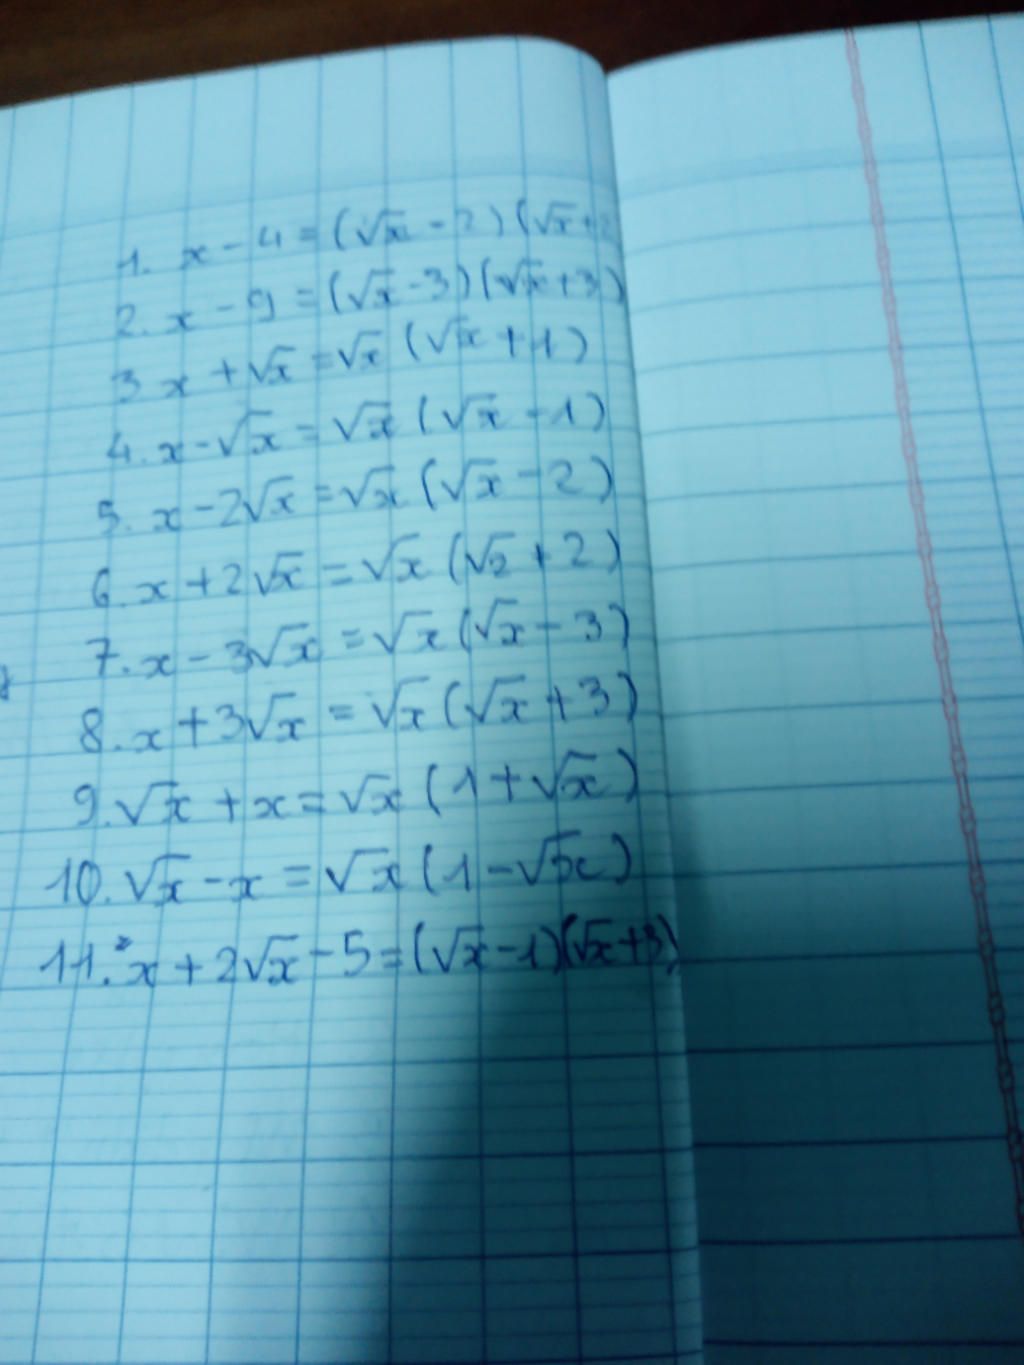 1. x - 4 = (√x - 2)(√x + 2
2. x - 9 = (√x - 3)(√x + 3)
3 x + √x = √x (√x + 1)
4. x - √x = √x (√x - 1)
5. x - 2√x = √x (√x - 2)
6. x + 2√x = √x (√2 + 2)
7. x - 3√x = √x (√x - 3)
8. x + 3√x = √x (√x + 3)
9. √x + x = √x (1 + √x)
10. √x - x = √x (1 - √x)
11. x + 2√x - 5 = (√x - 1)(√x + 3)